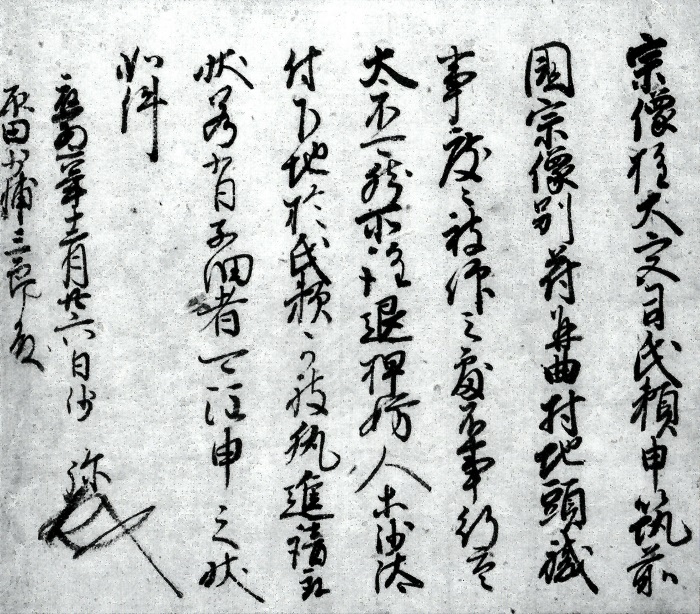 宗像社大宮司氏頼申筑前
国宗像別符並曲村地頭職
事度々被仰之處不事行云々
太不可然所詮退押妨人等沙汰
付下地於氏頼可被執進請取
状若廿日子細者可注申之状
如件
十二月廿六日沙弥
原田大輔三郎殿